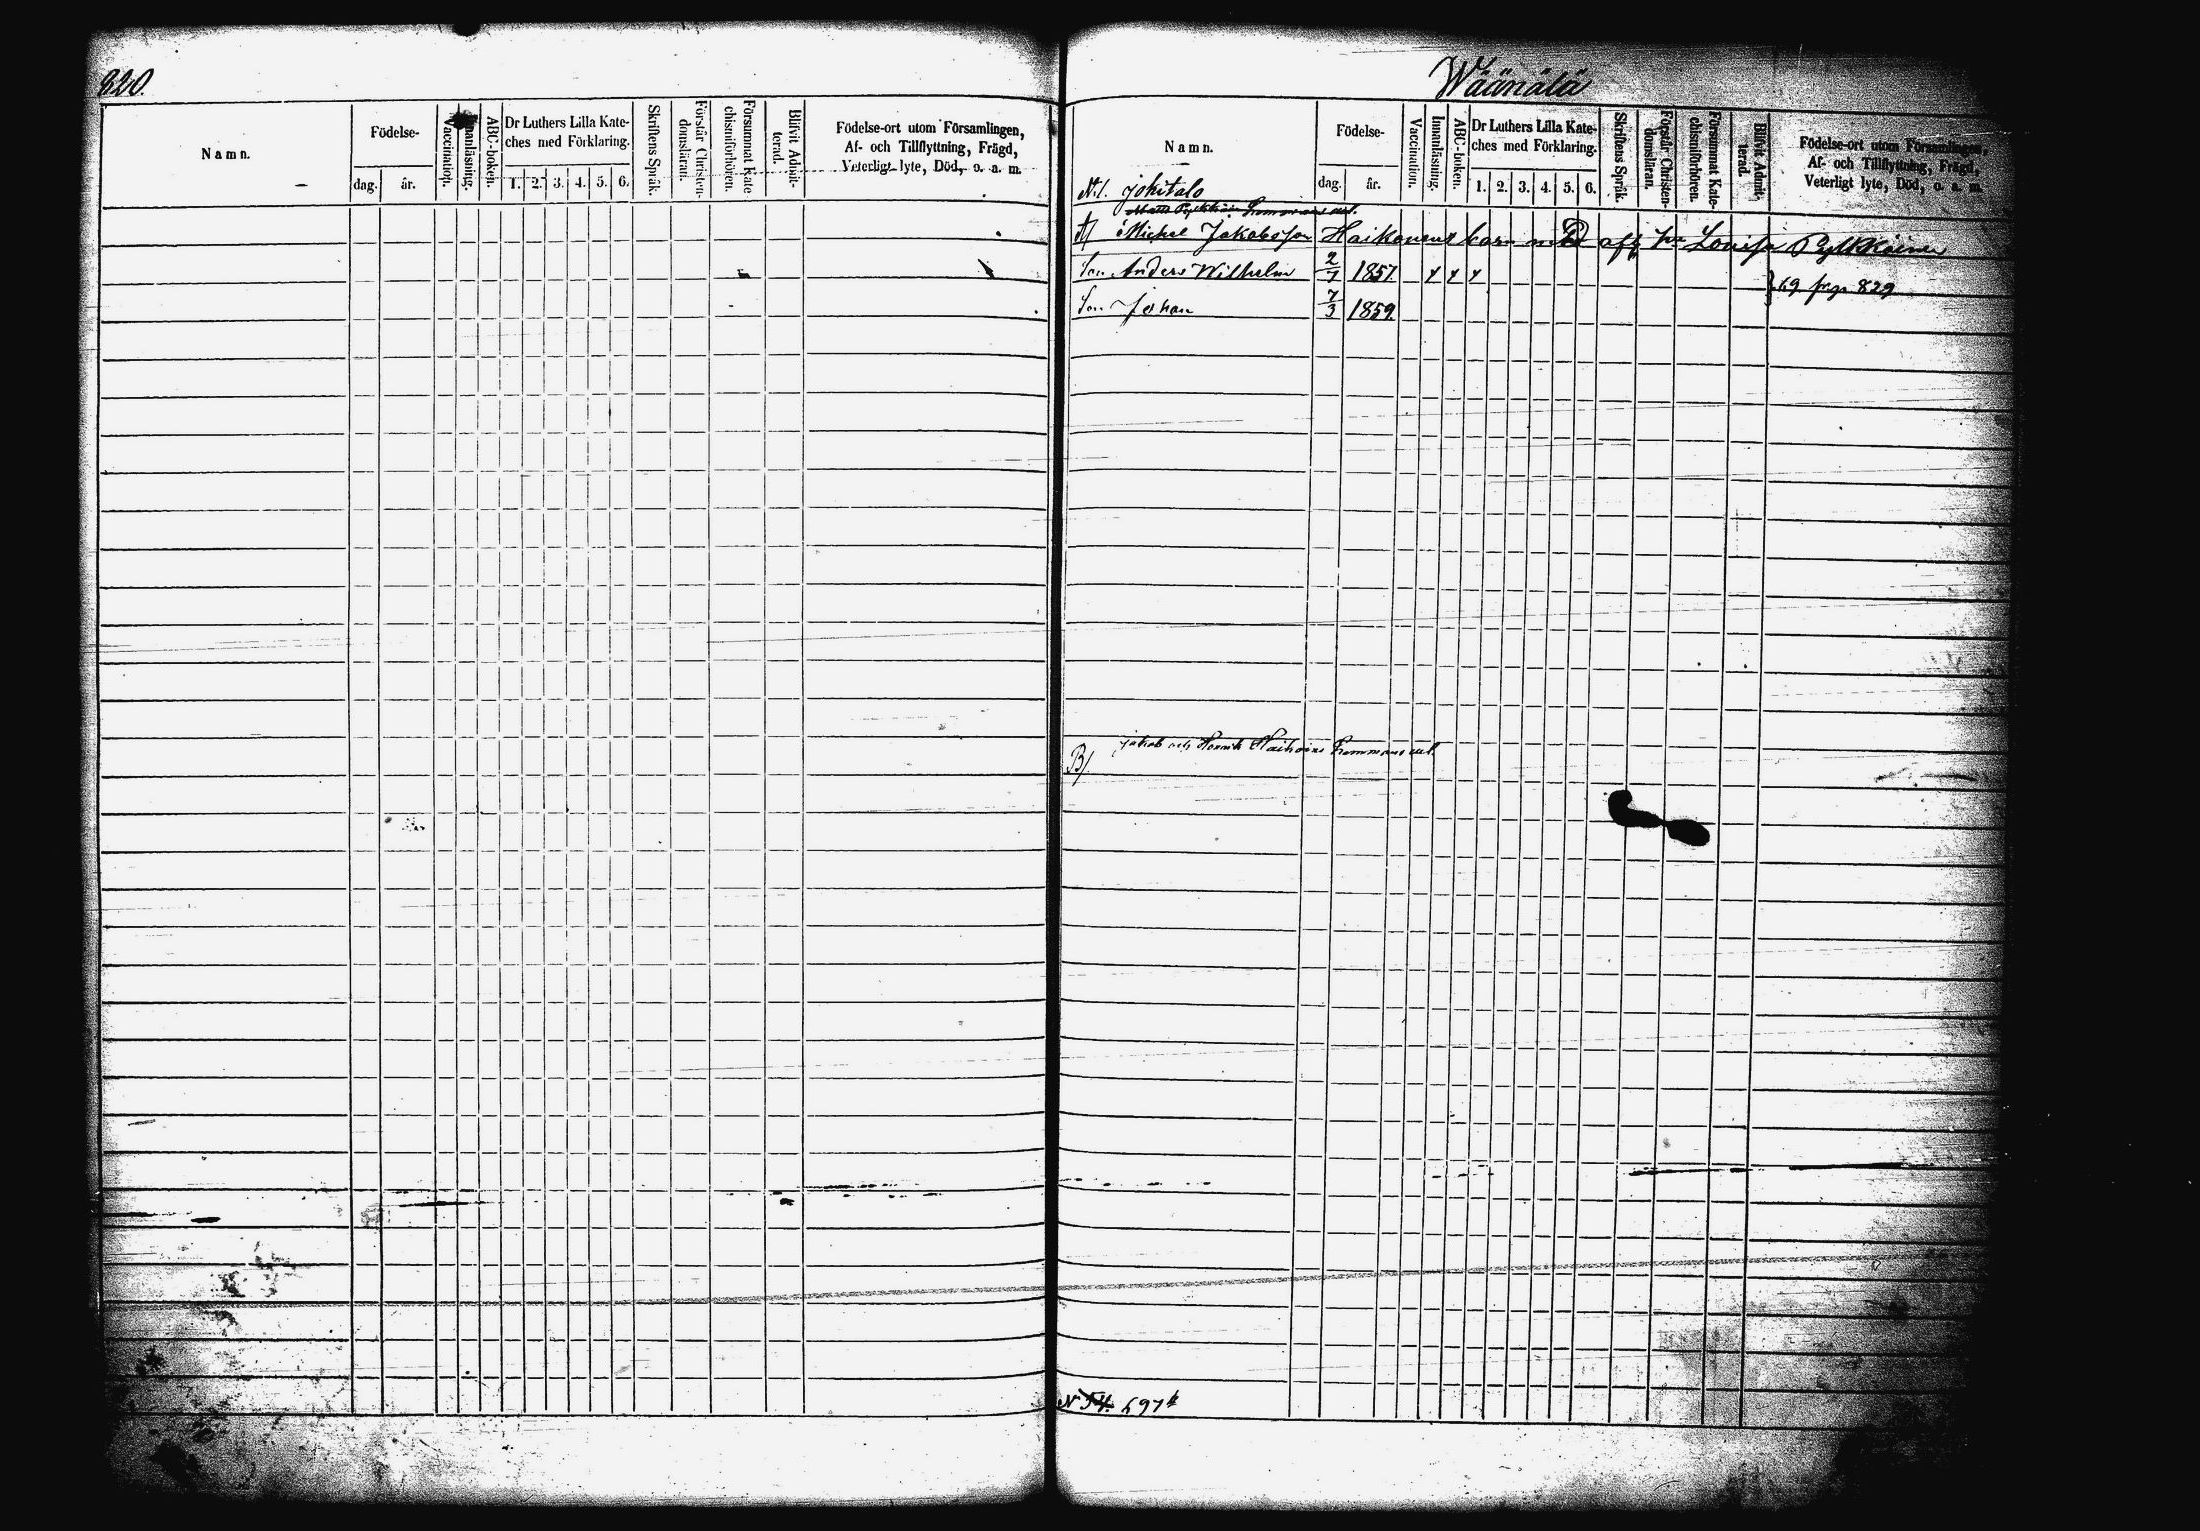 820.
Namn.
Födelse-
dag. år.
Vaccination.
Innanläsning.
ABC-boken.
Dr Luthers Lilla Kate-
ches med Förklaring.
1. 2. 3. 4. 5. 6.
Skriftens Språk.
Förstår Christen-
domsläran.
Försummat Kate-
chismiförhören.
Blifvit Admit-
terad.
Födelse-ort utom Församlingen,
Af- och Tillflyttning, Frägd,
Veterligt lyte, Död, o. a. m.
Wäänälä
Namn.
Födelse-
dag. år.
Vaccination.
Innanläsning.
ABC-boken.
Dr Luthers Lilla Kate-
ches med Förklaring.
1. 2. 3. 4. 5. 6.
Skriftens Språk.
Förstår Christen-
domsläran.
Försummat Kate-
chismiförhören.
Blifvit Admit-
terad.
Födelse-ort utom Församlingen,
Af- och Tillflyttning, Frägd,
Veterligt lyte, Död, o. a. m.
N:1. Jokitalo
A/ Michel Jakobsson Haikonens barn med afl. hu Lovisa Pylkköinen
Son Anders Wilhelm 2/7 1857
Son Johan 7/3 1859.
} 69 pag 829
B/ Jakob och Henrik
N 54. 697